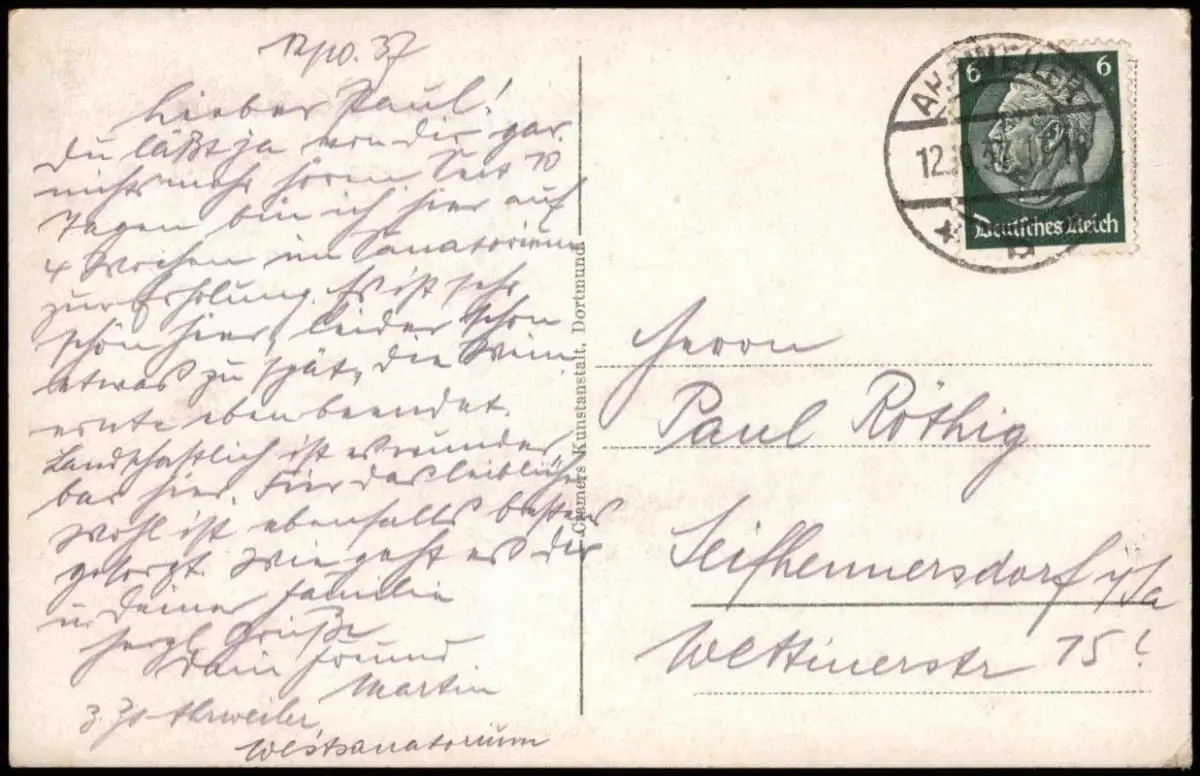 12/10. 37
Lieber Paul!
Du läßt ja von dir gar
nichts mehr hören Seit 10
Tagen bin ich hier auf
4 Wochen im Sanatorium
zur Erholung. Es ist sehr
schön hier, leider schon
etwas zu spät, die Wein
ernte eben beendet.
Landschaftlich ist es wunder
bar hier. Für das leibliche
Wohl ist ebenfalls bestens
gesorgt. Wie geht es dir
u. deiner Familie
herzl. Grüße
dein Freund
Martin
z. Zt. Ahrweiler
Westsanatorium
Cramers Kunstanstalt, Dortmund
AHRWEILER
12.10.37
6 6
Deutsches Reich
Herrn
Paul Röthig
Seifhennersdorf i/Sa
Wettinerstr 15